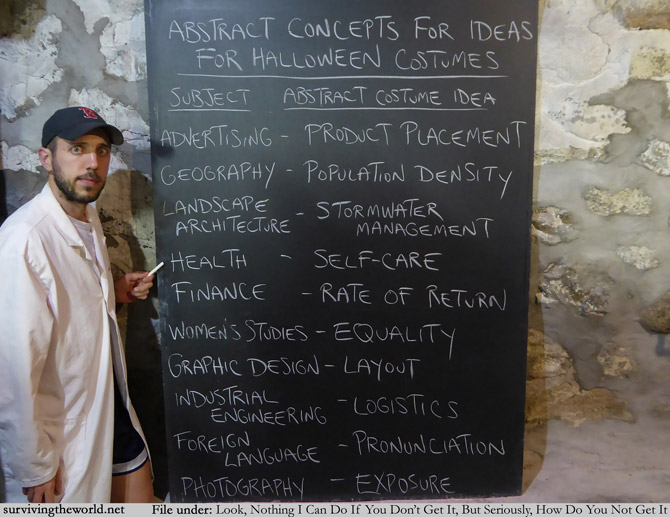 ABSTRACT CONCEPTS FOR IDEAS
FOR HALLOWEEN COSTUMES
SUBJECT ABSTRACT COSTUME IDEA
ADVERTISING - PRODUCT PLACEMENT
GEOGRAPHY - POPULATION DENSITY
LANDSCAPE
ARCHITECTURE - STORMWATER
MANAGEMENT
HEALTH - SELF-CARE
FINANCE - RATE OF RETURN
WOMEN'S STUDIES - EQUALITY
GRAPHIC DESIGN - LAYOUT
INDUSTRIAL
ENGINEERING - LOGISTICS
FOREIGN
LANGUAGE - PRONUNCIATION
PHOTOGRAPHY - EXPOSURE
survivingtheworld.net File under: Look, Nothing I Can Do If You Don't Get It, But Seriously, How Do You Not Get It